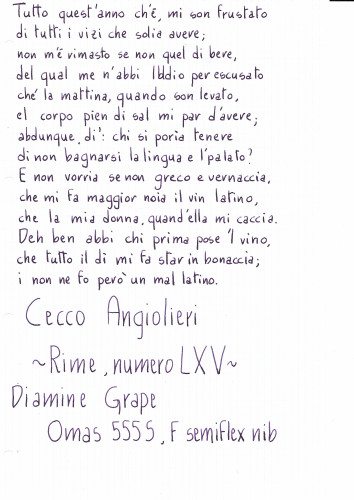 Tutto quest'anno ch'è, mi son frustato
di tutti i vizi che solìa avere;
non m'è rimasto se non quel di bere,
del qual me n'abbi Iddio per escusato
ché la mattina, quando son levato,
el corpo pien di sal mi par d'avere;
abdunque, di': chi si porìa tenere
di non bagnarsi la lingua e l'palato?
E non vorrìa se non greco e vernaccia,
che mi fa maggior noia il vin latino,
che la mia donna, quand'ella mi caccia.
Deh ben abbi chi prima pose 'l vino,
che tutto il dì mi fa star in bonaccia;
i non ne fo però un mal latino.
Cecco Angiolieri
~Rime, numero LXV~
Diamine Grape
Omas 555 S, F semiflex nib